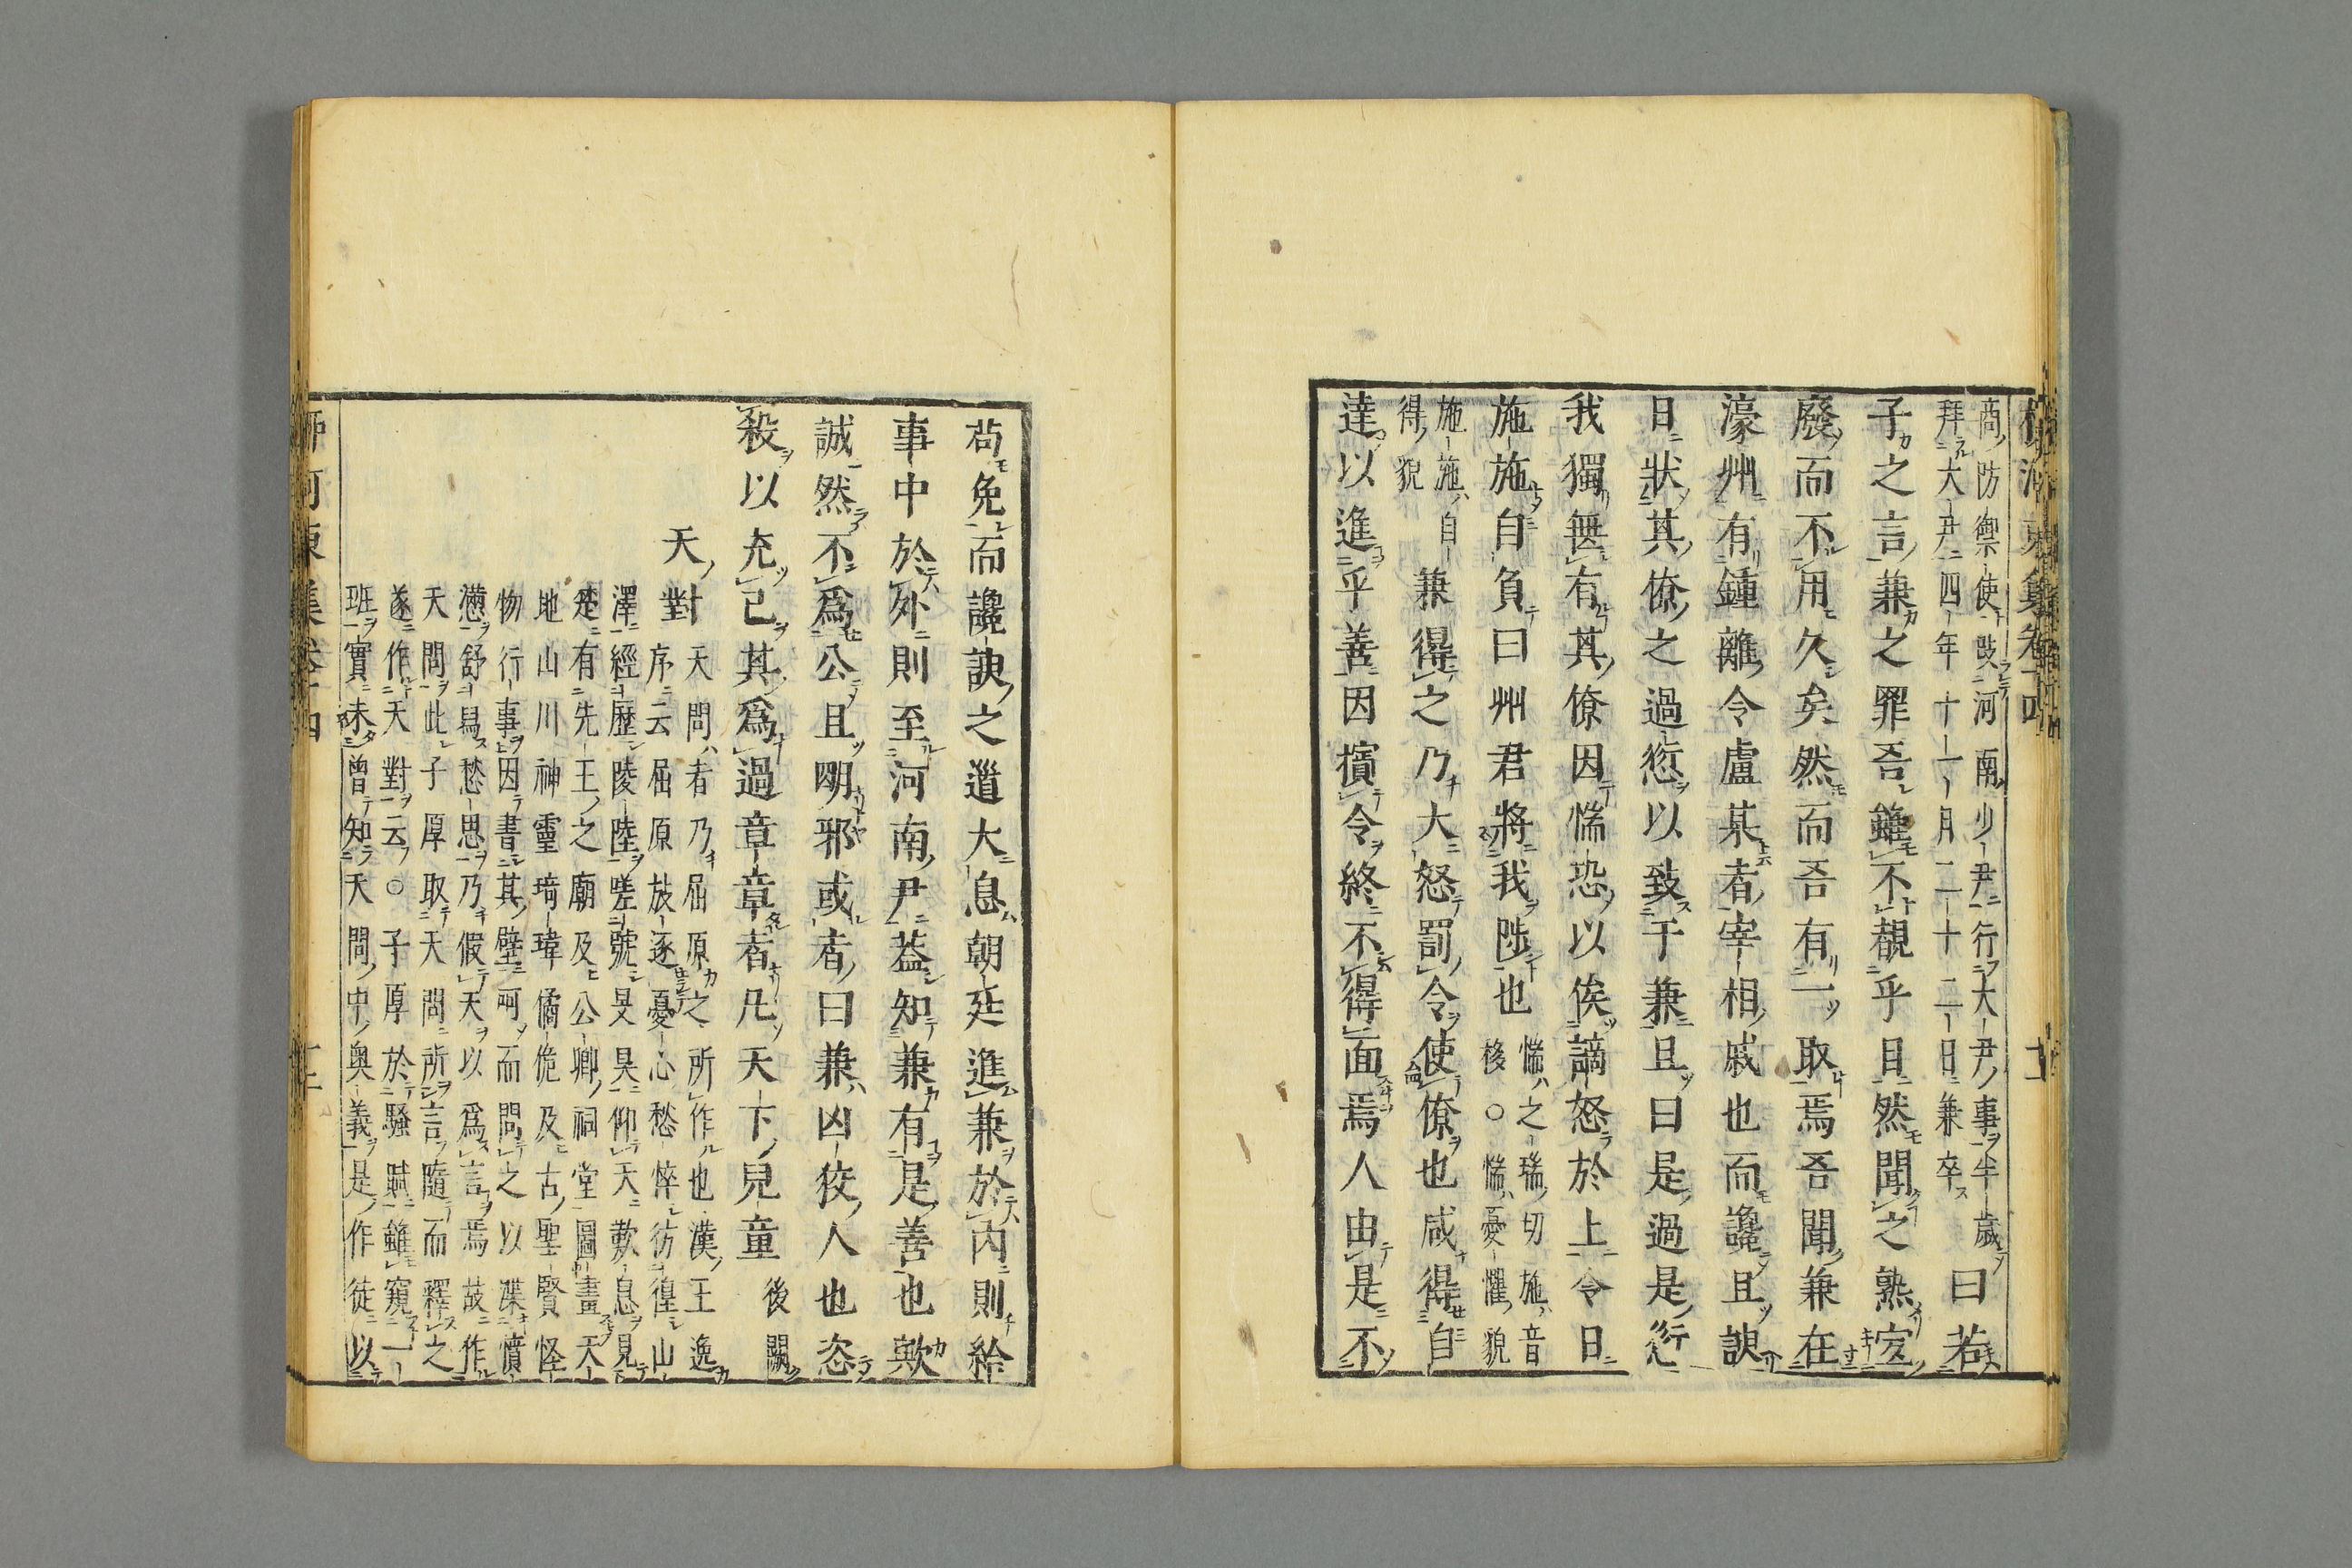 柳河東集卷十四
商防禦使改河南少尹行大尹事半歲
拜大尹四年十一月二十二日兼卒
曰若
子之言兼之罪吾雖不覩乎目然聞之熟定
廢而不用久矣然而吾有一取焉吾聞兼在
濠州有鍾離令盧某者宰相戚也而讒且諛
日狀其僚之過愆以致于兼且曰是過是愆
我獨無有其僚因惴恐以俟謫怒於上令日
施施自負曰州君將我陟也
惴之瑞切施音
移○惴憂懼貌
施施自
得貌
兼得之乃大怒罰令使僚也咸得自
達以進乎善因擯令終不得面焉人由是不
苟免而讒諛之道大息朝廷進兼於內則給
事中於外則至河南尹葢知兼有是善也歟
誠然不爲公且明邪或者曰兼凶狡人也恣
殺以充己其爲過章章者凡天下兒童
後闕
天對
天問者乃屈原之所作也漢王逸
序云屈原放逐憂心愁悴彷徨山
澤經歷陵陸嗟號旻昊仰天歎息見
楚有先王之廟及公卿祠堂圖畫天
地山川神靈琦瑋僪佹及古聖賢怪
物行事因書其壁呵而問之以渫憤
懣舒瀉愁思乃假天以爲言焉故作
天問此子厚取天問所言隨而釋之
遂作天對云○子厚於騷賦雖窺一
班實未曾知天問中奧義是作徒以
柳河東集卷十四